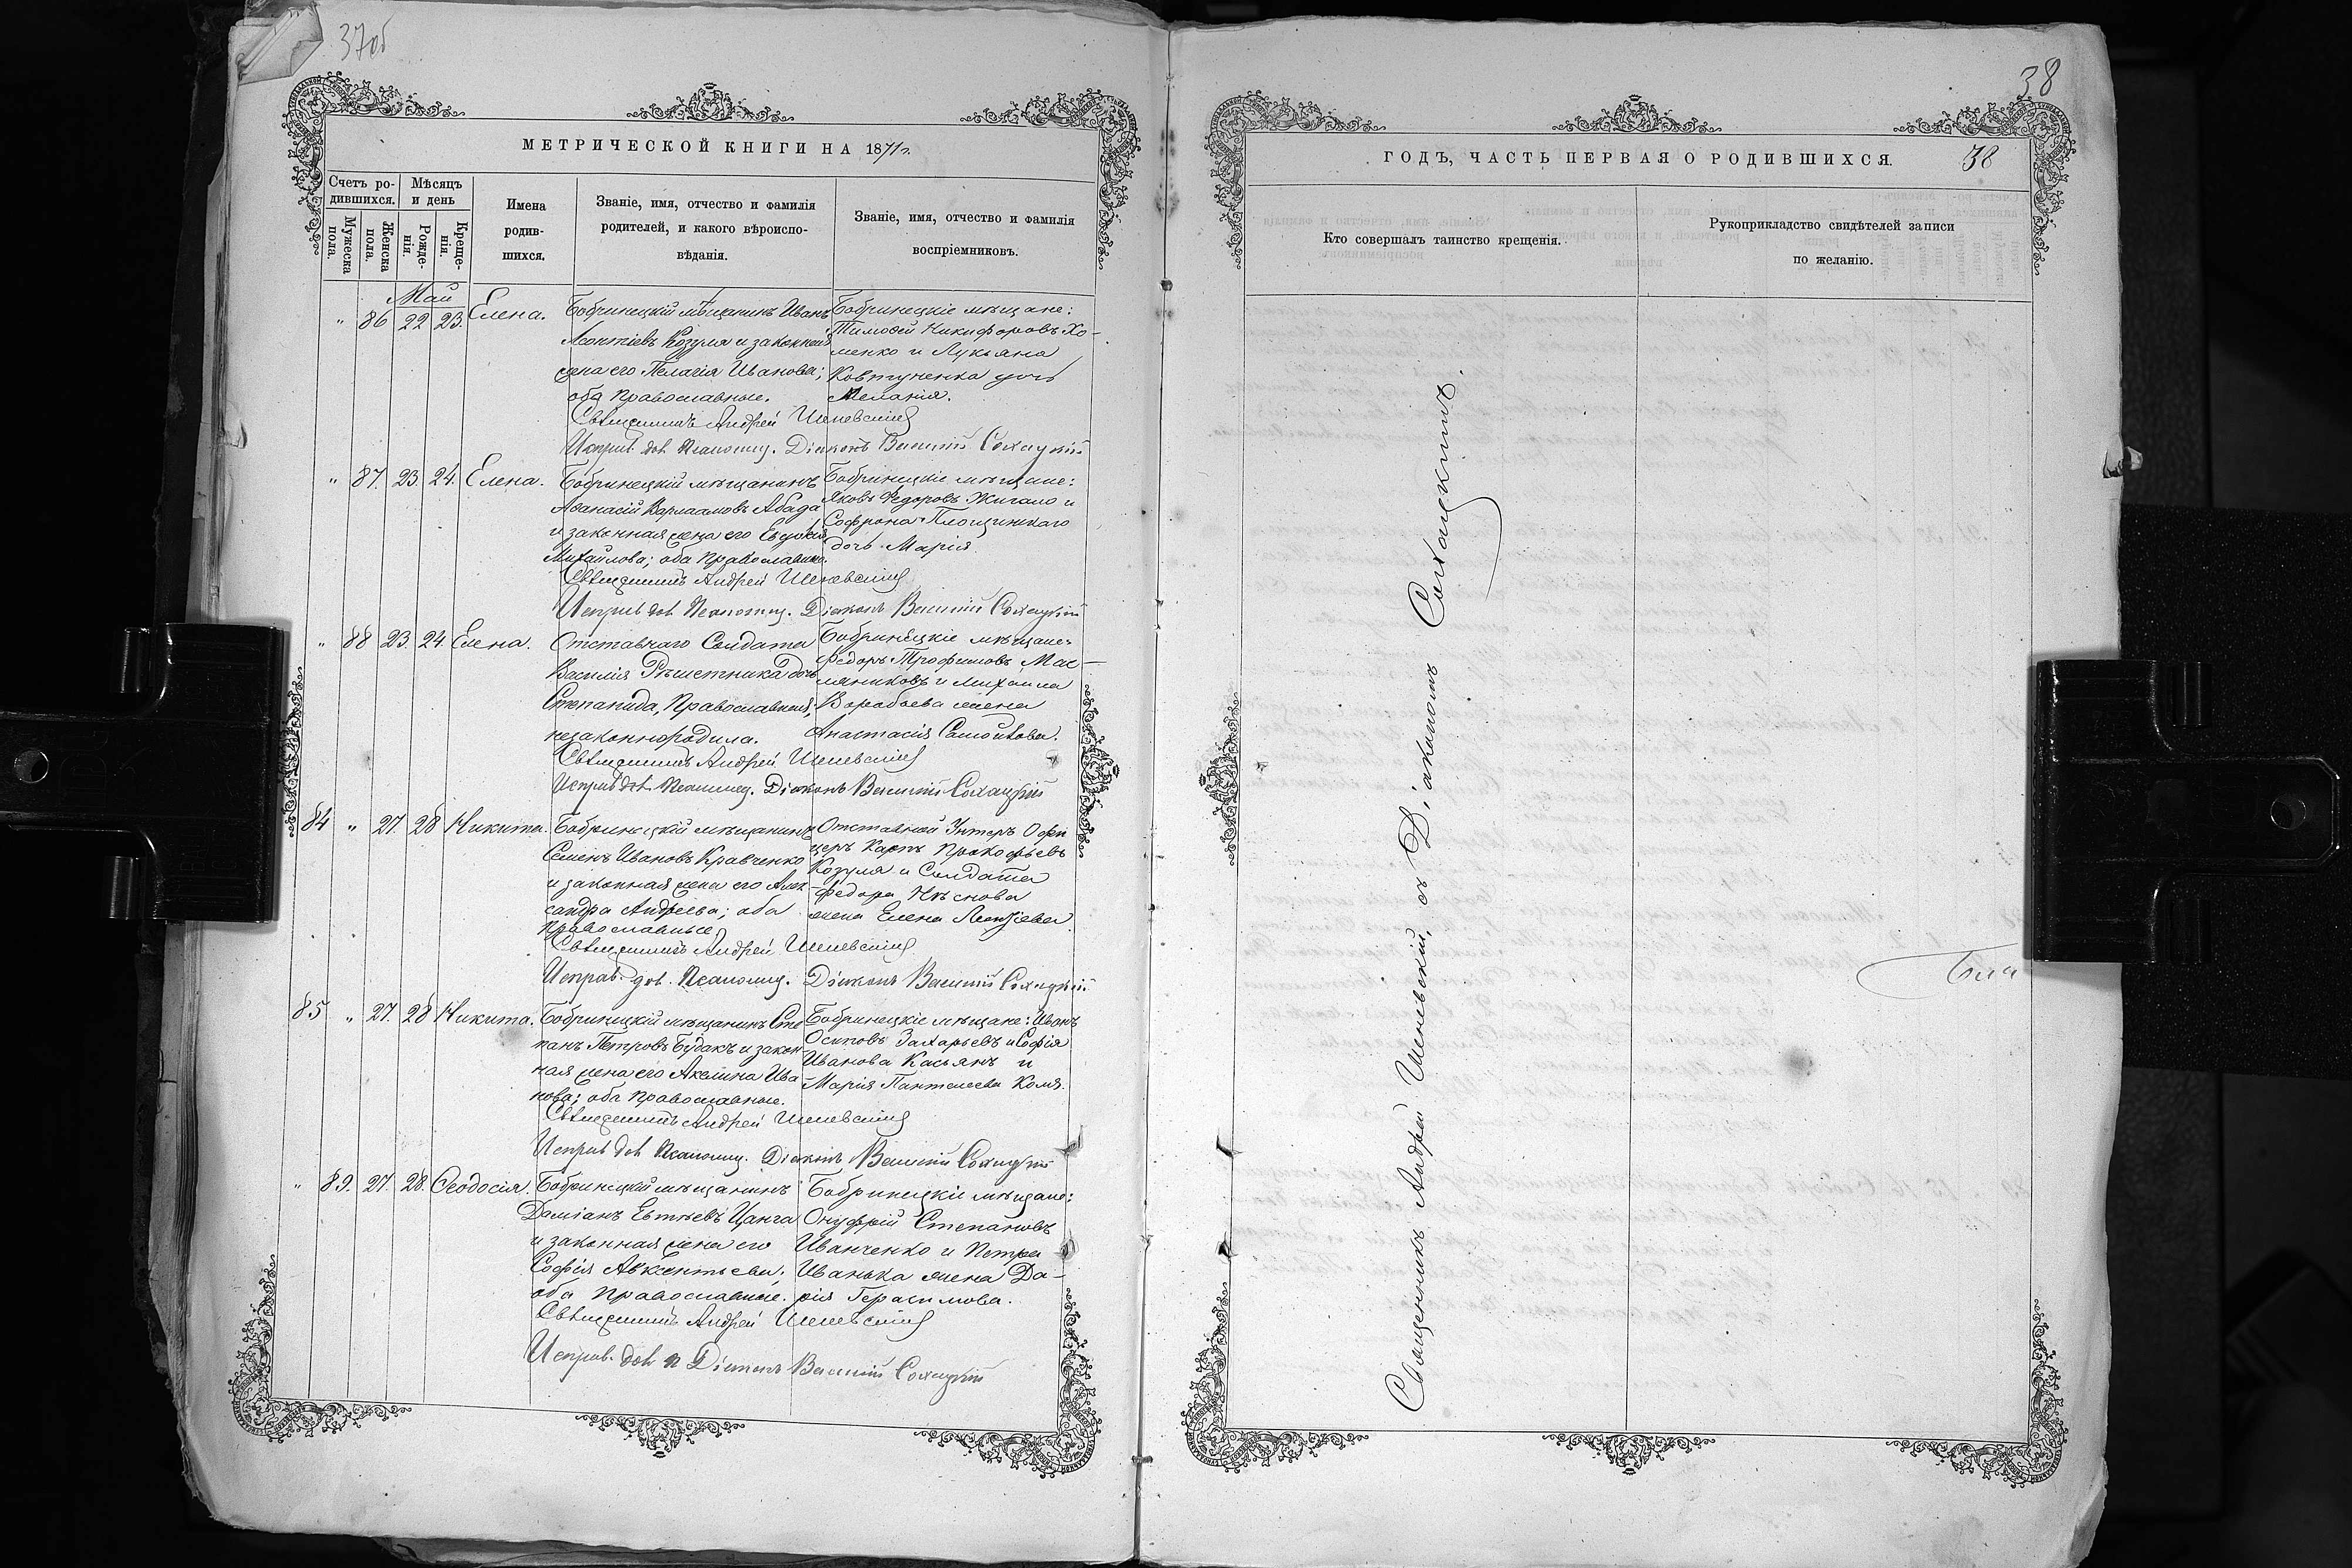 37об
МЕТРИЧЕСКОЙ КНИГИ НА 1871 г.
Счетъ ро-
дившихся.
Мужеска
пола.
Женска
пола.
Мѣсяцъ
и день
Рожде-
нія.
Креще-
нія.
Имена
родив-
шихся.
Званіе, имя, отчество и фамилія
родителей, и какого вѣроиспо-
вѣданія.
Званіе, имя, отчество и фамилія
воспріемниковъ.
Май
" 86 22 23. Елена.
Бобринецкій мѣщанинъ Иванъ
Леонтіевъ Козуля и законная
жена его Пелагія Иванова;
оба православные.
Бобринецкіе мѣщане:
Тимофей Никифоровъ Хо-
менко и Лукьяна
Ковтуненка дочь
Меланія.
Священникъ Андрей
Исправ. дол. Псаломщ. Діаконъ Василій Сохацкій
" 87. 23. 24. Елена.
Бобринецкій мѣщанинъ
Аѳанасій Варлаамовъ Абада
и законная жена его Евдокія
Михайлова; оба православные.
Бобринецкіе мѣщане:
Яковъ Ѳедоровъ Жигало и
Софрона
дочь Марія.
Священникъ Андрей
Исправ. дол. Псаломщ. Діаконъ Василій Сохацкій
" 88 23. 24. Елена.
Отставнаго Солдата
Василія Рѣшетника дочь
Степанида, Православная,
незаконнородила.
Бобринецкіе мѣщане:
Ѳедоръ Трофимовъ Мас-
ляниковъ и Михаила
Воробьева жена
Анастасія Самойлова.
Священникъ Андрей
Исправ. дол. Псаломщ. Діаконъ Василій Сохацкій
84 " 27. 28 Никита.
Бобринецкій мѣщанинъ
Семенъ Ивановъ Кравченко
и законная жена его Алек-
сандра Андреева; оба
православные.
Отставной Унтеръ Офи
церъ Карпъ Прокофьевъ
Козуля и Солдата
Ѳедора
жена Елена Леонтіева.
Священникъ Андрей
Исправ. дол. Псаломщ. Діаконъ Василій Сохацкій
85 " 27. 28 Никита.
Бобринецкій мѣщанинъ Сте
панъ Петровъ Будакъ и закон-
ная жена его Акелина Ива-
нова; оба православные.
Бобринецкіе мѣщане: Иванъ
Осиповъ Захарьевъ и Софія
Иванова Касьянъ и
Марія Пантелеева Комя.
Священникъ Андрей
Исправ. дол. Псаломщ. Діаконъ Василій Сохацкій
" 89. 27. 28. Ѳеодосія.
Бобринецкій мѣщанинъ
Даміанъ Евтѣевъ Цанга
и законная жена его
Софія Авксентьева;
оба православные.
Бобринецкіе мѣщане:
Онуфрій Степановъ
Иванченко и Петра
Иванька жена Да-
рія Герасимова.
Священникъ Андрей
Исправ. дол. п Діаконъ Василій Сохацкій
38
ГОДЪ, ЧАСТЬ ПЕРВАЯ О РОДИВШИХСЯ. 38
Кто совершалъ таинство крещенія.
Рукоприкладство свидѣтелей записи
по желанію.
Священникъ Андрей съ Діакономъ Сохацкимъ.